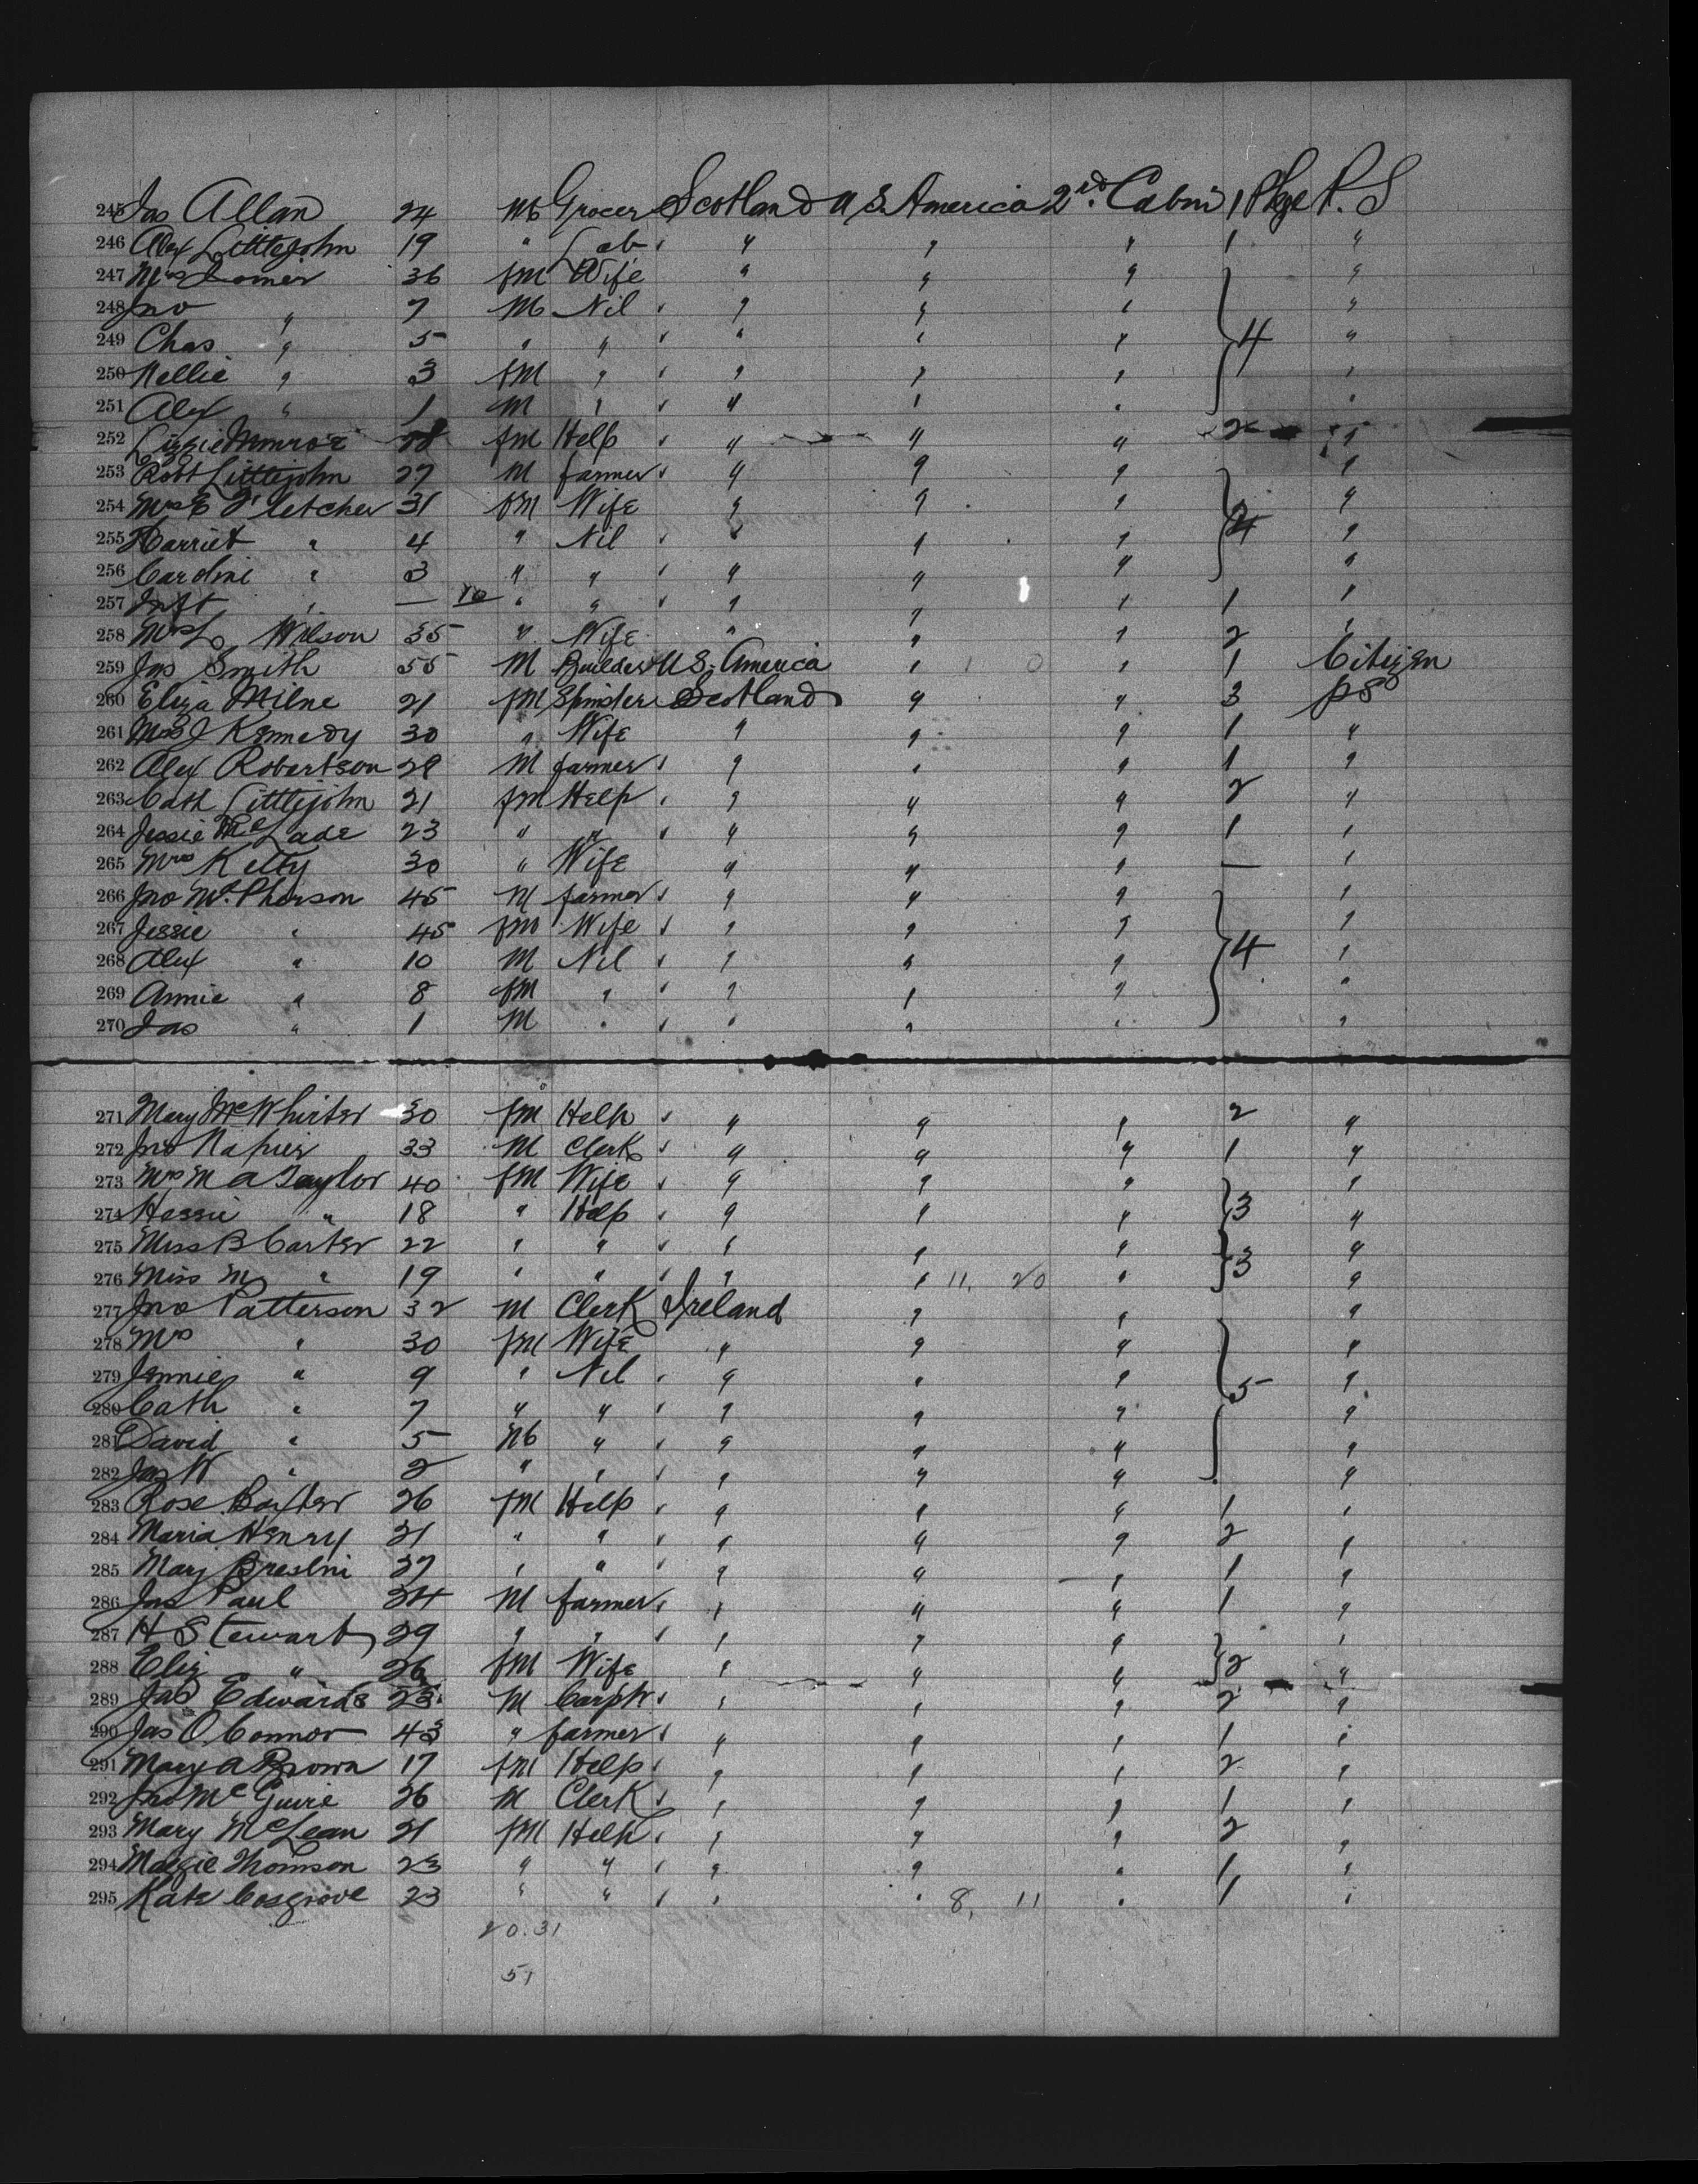 245 Jas Allan 24 M Grocer Scotland U S. America 2nd Cabin 1 Pkge P. S
246 Alex Littlejohn 19 " Lab " " " 1 "
247 Mrs 36 fM Wife " " " "
248 Jno " 7 M Nil " " " "
249 Chas " 5 " " " " " 4 "
250 Nellie " 3 fM " " " " "
251 Alex " 1 M " " " " "
252 Lizzie Munroe 28 fM Help " " " 2 "
253 Robt Littlejohn 27 M farmer " " " "
254 Mrs E Fletcher 31 fM Wife " " " "
255 Harriet " 4 " Nil " " " 4 "
256 Caroline " 3 " " " " " "
257 Inft " — 10 " " " " " 1 "
258 Mrs L Wilson 35 " Wife " " " 2 "
259 Jas Smith 55 M Builder U S. America " 1 0 " 1 Citizen
260 Eliza Milne 21 fM Spinster Scotland " " 3 PS
261 Mrs J Kennedy 30 " Wife " " " 1 "
262 Alex Robertson 29 M farmer " " " 1 "
263 Cath Littlejohn 21 fM Help " " " 2 "
264 Jessie McLade 23 " " " " " 1 "
265 Mrs Ketty 30 " Wife " " " — "
266 Jno McPherson 45 M farmer " " " "
267 Jessie " 45 fM Wife " " " "
268 Alex " 10 M Nil " " " 4 "
269 Annie " 8 fM " " " " "
270 Jas " 1 M " " " " "
271 Mary McWhirter 30 fM Help " " " 2 "
272 Jno Napier 33 M Clerk " " " 1 "
273 Mrs M A Taylor 40 fM Wife " " " "
274 Hessie " 18 " Help " " " 3 "
275 Miss B Carter 22 " " " " " "
276 Miss M " 19 " " " " 11, 20 " 3 "
277 Jno Patterson 32 M Clerk Ireland " " "
278 Mrs " 30 fM Wife " " " "
279 Jennie " 9 " Nil " " " 5 "
280 Cath " 7 " " " " " "
281 David " 5 M " " " " "
282 Jas W " 2 " " " " " "
283 Rose Baxter 26 fM Help " " " 1 "
284 Maria Henry 21 " " " " " 2 "
285 Mary Breslin 37 " " " " " 1 "
286 Jas Paul 34 M farmer " " " 1 "
287 H Stewart 29 " " " " " "
288 Eliz " 26 fM Wife " " " 2 "
289 Jas Edwards 23 M Carptr " " " 2 "
290 Jas O Connor 43 " farmer " " " 1 "
291 Mary A Brown 17 fM Help " " " 2 "
292 Jno McGuire 26 M Clerk " " " 1 "
293 Mary McLean 21 fM Help " " " 2 "
294 Maggie Thomson 23 " " " " " 1 "
295 Kate Cosgrove 23 " " " " 8, 11 " 1 "
20.31
51